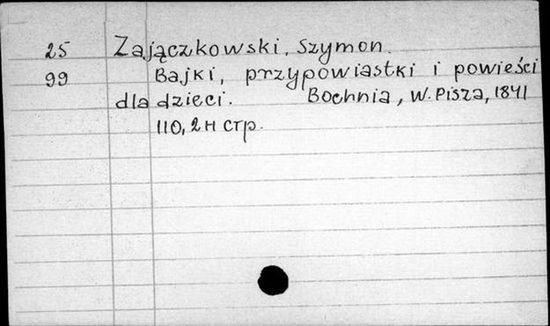 25 Zajączkowski, Szymon.
99 Bajki, przypowiastki i powieści
dla dzieci. Bochnia, W. Pisza, 1841
110, 2 н стр.